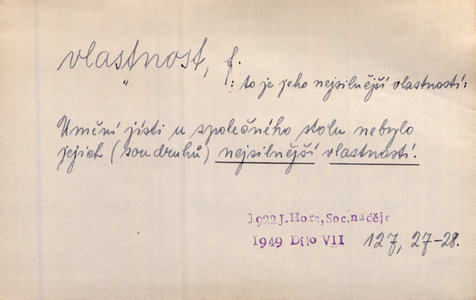 vlastnost, f.
: to je jeho nejsilnější vlastností:
Umění jísti u společného stolu nebylo
jejich (soudruhů) nejsilnější vlastností.
1922 J. Hora, Soc. naděje
1949 Dílo VII 127, 27-28.